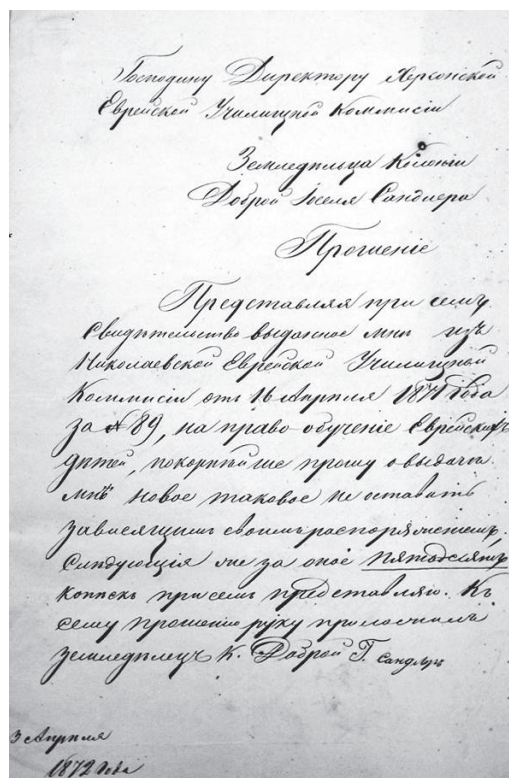 Господину Директору Херсонской
Еврейской Училищной Коммисіи
Земледѣльца Колоніи
Доброй Іоселя Сандлера
Прошеніе
Представляя при семъ
свидѣтельство выданное мнѣ изъ
Николаевской Еврейской Училищной
Коммисіи отъ 16 Апрѣля 1871 года
за № 89, на право обученіе Еврейскихъ
дѣтей, покорнѣйше прошу о выдачи
мнѣ новое таковое не оставить
зависящимъ своимъ распоряженіемъ.
Слѣдующія же за оное пятьдесятъ
копѣекъ при семъ представляю. Къ
сему прошенію руку приложилъ
земледѣлецъ К. Доброй Г. Сандлеръ
3 Апрѣля
1872 года